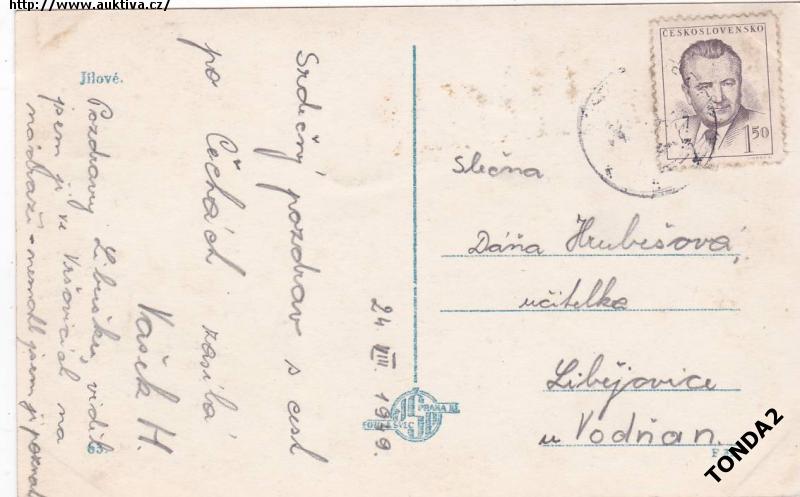 http://www.auktiva.cz/
Jílové.
ČESKOSLOVENSKO
1.50
Srdečný pozdrav s cest
po Čechách zasílá
Vašek H.
Pozdravuj Libušku, viděl
jsem ji ve Vršovicích na
nádraží - nemohl jsem ji poznat
24. VIII. 1949.
Slečna
Dáňa Hrubešová,
učitelka
Libějovice
u Vodňan.
PRAHA XI
63.
TONDA2